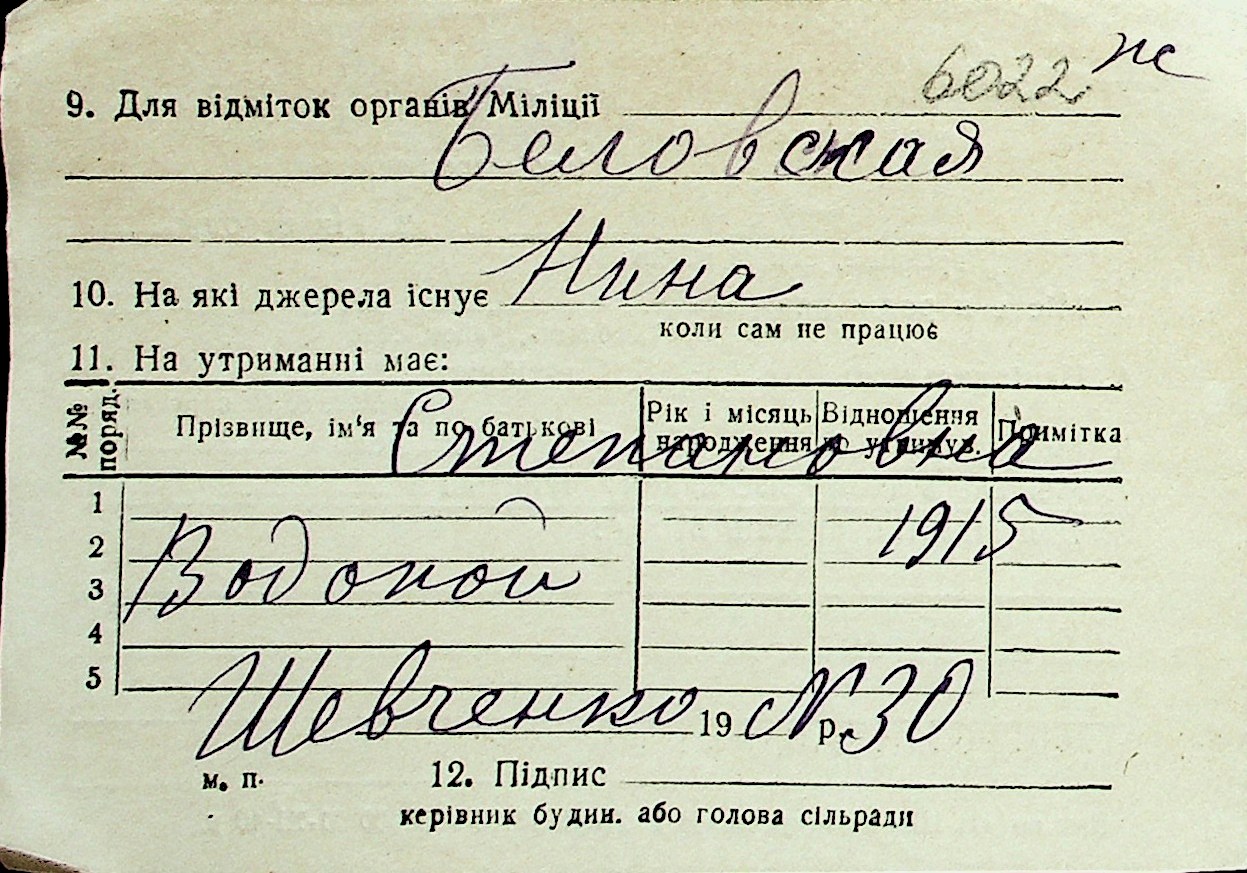 6022 пс
9. Для відміток органів Міліції
Беловская
Нина
10. На які джерела існує
коли сам не працює
11. На утриманні має:
№№ поряд. Прізвище, ім'я та по батькові Рік і місяць народження Відношення до утримув. Примітка
Степановна
1
1915
2
Водопой
3
4
5
Шевченко N 30
19 р.
м. п. 12. Підпис
керівник будин. або голова сільради